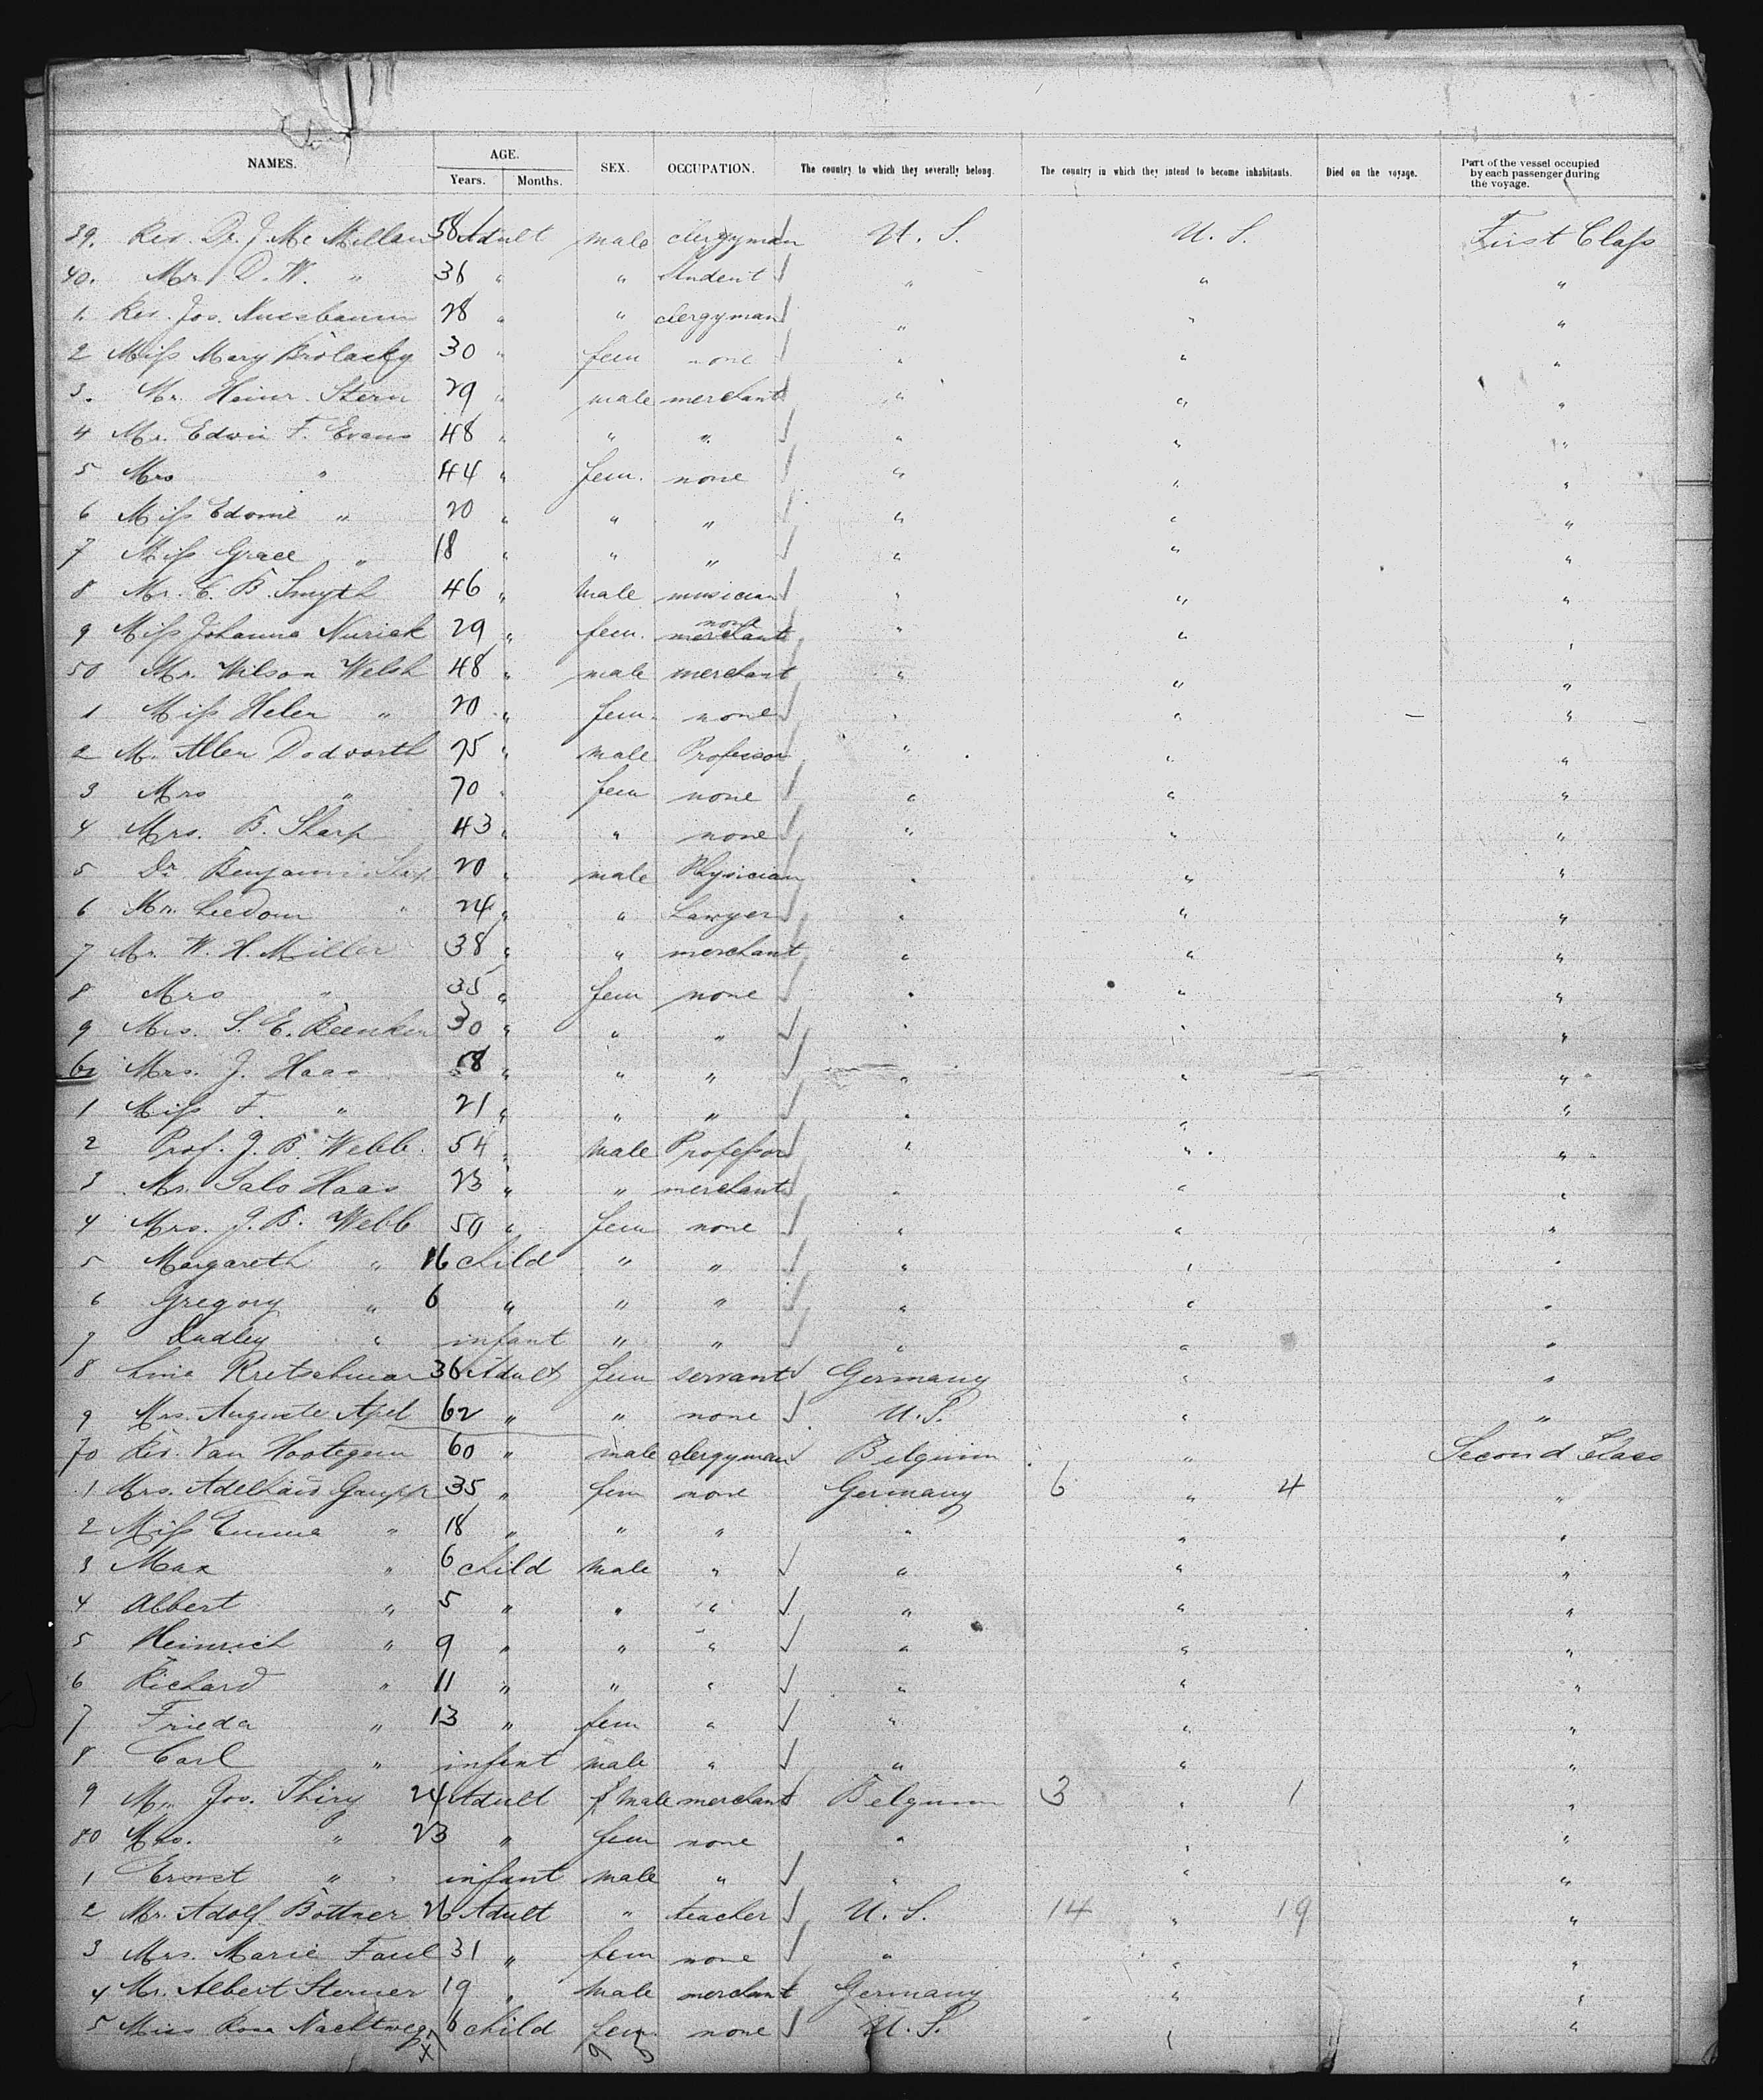 NAMES. AGE. SEX. OCCUPATION. The country to which they severally belong. The country in which they intend to become inhabitants. Died on the voyage. Part of the vessel occupied by each passenger during the voyage.
Years. Months.
39. Rev. Dr. J. Mc Millan 58 Adult male clergyman U. S. U. S. First Class
40. Mr. D. W. " 36 " " Student " " "
1. Rev. Jos. Nussbaum 28 " " clergyman " " "
2 Miss Mary Brolasky 30 " fem none " " "
3. Mr. Heinr. Stern 29 " male merchant " " "
4 Mr. Edwin F. Evans 48 " " " " " "
5 Mrs " 44 " fem. none " " "
6 Miss Edomie " 20 " " " " " "
7 Miss Grace " 18 " " " " " "
8 Mr. C. B. Smyth 46 " male musician " " "
9 Miss Johanna Nuriak 29 " fem. none merchant " " "
50 Mr. Wilson Welsh 48 " male merchant " " "
1 Miss Helen " 20 " fem. none " " "
2 Mr. Allen Dodworth 75 " male Professor " " "
3 Mrs " 70 " fem none " " "
4 Mrs. B. Sharp 43 " " none " " "
5 Dr. Benjamin Sharp 20 " male Physician " " "
6 Mr. Leedom " 24 " " Lawyer " " "
7 Mr. W. H. Miller 38 " " merchant " " "
8 Mrs " 35 " fem none " " "
9 Mrs. S. E. 30 " " " " " "
60 Mrs. J. Haas 58 " " " " " "
1 Miss F. " 21 " " " " " "
2 Prof. J. B. Webb. 54 " male Professor " " "
3 Mr. Salo Haas 23 " " merchant " " "
4 Mrs. J. B. Webb 50 " fem none " " "
5 Margareth " 16 child " " " " "
6 Gregory " 6 " " " " " "
7 Dudley " infant " " " " "
8 Lina Kretschmar 36 Adult fem servant Germany " "
9 Mrs. Auguste Apel 62 " " none U. S. " "
70 Rev. Van Hootegem 60 " male clergyman Belgium " Second Class
1 Mrs. Adelhaid Gaupp 35 " fem none Germany 6 " 4 "
2 Miss Emma " 18 " " " " " "
3 Max " 6 child male " " " "
4 Albert " 5 " " " " " "
5 Heinrich " 9 " " " " " "
6 Richard " 11 " " " " " "
7 Frieda " 13 " fem " " " "
8 Carl " infant male " " " "
9 Mr. Jos. Thiry 24 Adult male merchant Belgium 3 " 1 "
80 Mrs. " 23 " fem none " " "
1 Ernst " infant male " " " "
2 Mr. Adolf Böttner 26 Adult " teacher U. S. 14 " 19 "
3 Mrs. Marie Faul 31 " fem none " " "
4 Mr. Albert Sterner 19 " male merchant Germany " "
5 Miss Rosa Nachtweg 6 child fem. none U. S. " "